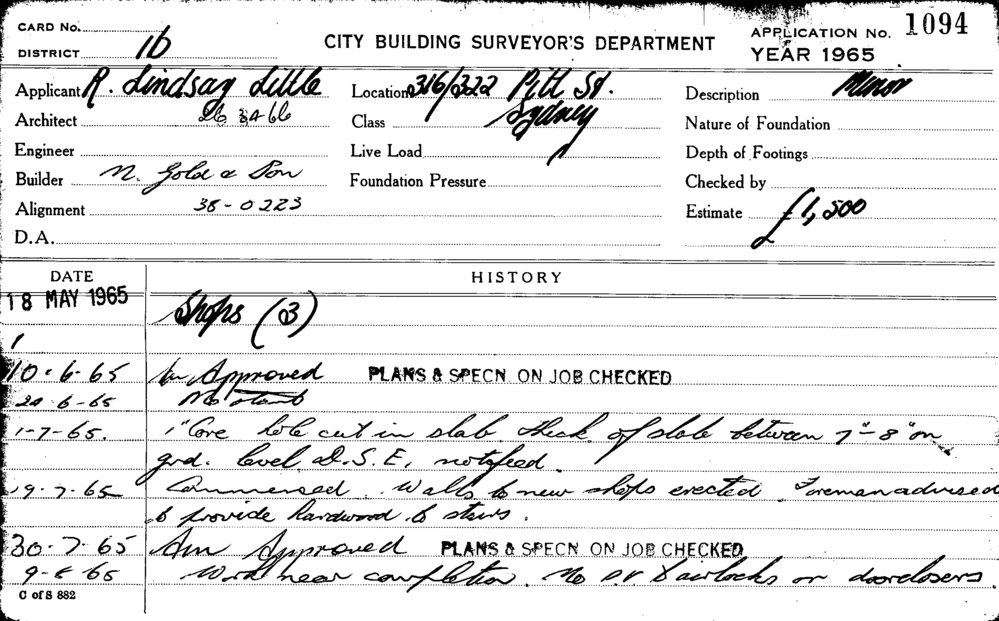 CARD No.
DISTRICT 1b
CITY BUILDING SURVEYOR'S DEPARTMENT
APPLICATION No. 1094
YEAR 1965
Applicant R. Lindsay Little
Location 316/322 Pitt St.
Sydney
Description Minor
Architect
Class
Nature of Foundation
Engineer
Live Load
Depth of Footings
Builder N. Gold & Son
Foundation Pressure
Checked by
Alignment 38-0223
Estimate £1,500
D.A.
DATE
HISTORY
18 MAY 1965
Shops (3)
10-6-65 Approved PLANS & SPECN. ON JOB CHECKED
24-6-65 No start
1-7-65. 1" Core hole cut in slab thick. of slab between 7"-8" on
grd. level. D.S.E. notified.
19-7-65 Commenced. Walls to new shops erected. Foreman advised
to provide hardwood to stairs.
30-7-65 Am Approved PLANS & SPECN. ON JOB CHECKED
9-8-65 Work near completion. No P.V. & airlocks or doorclosers.
C of S 882